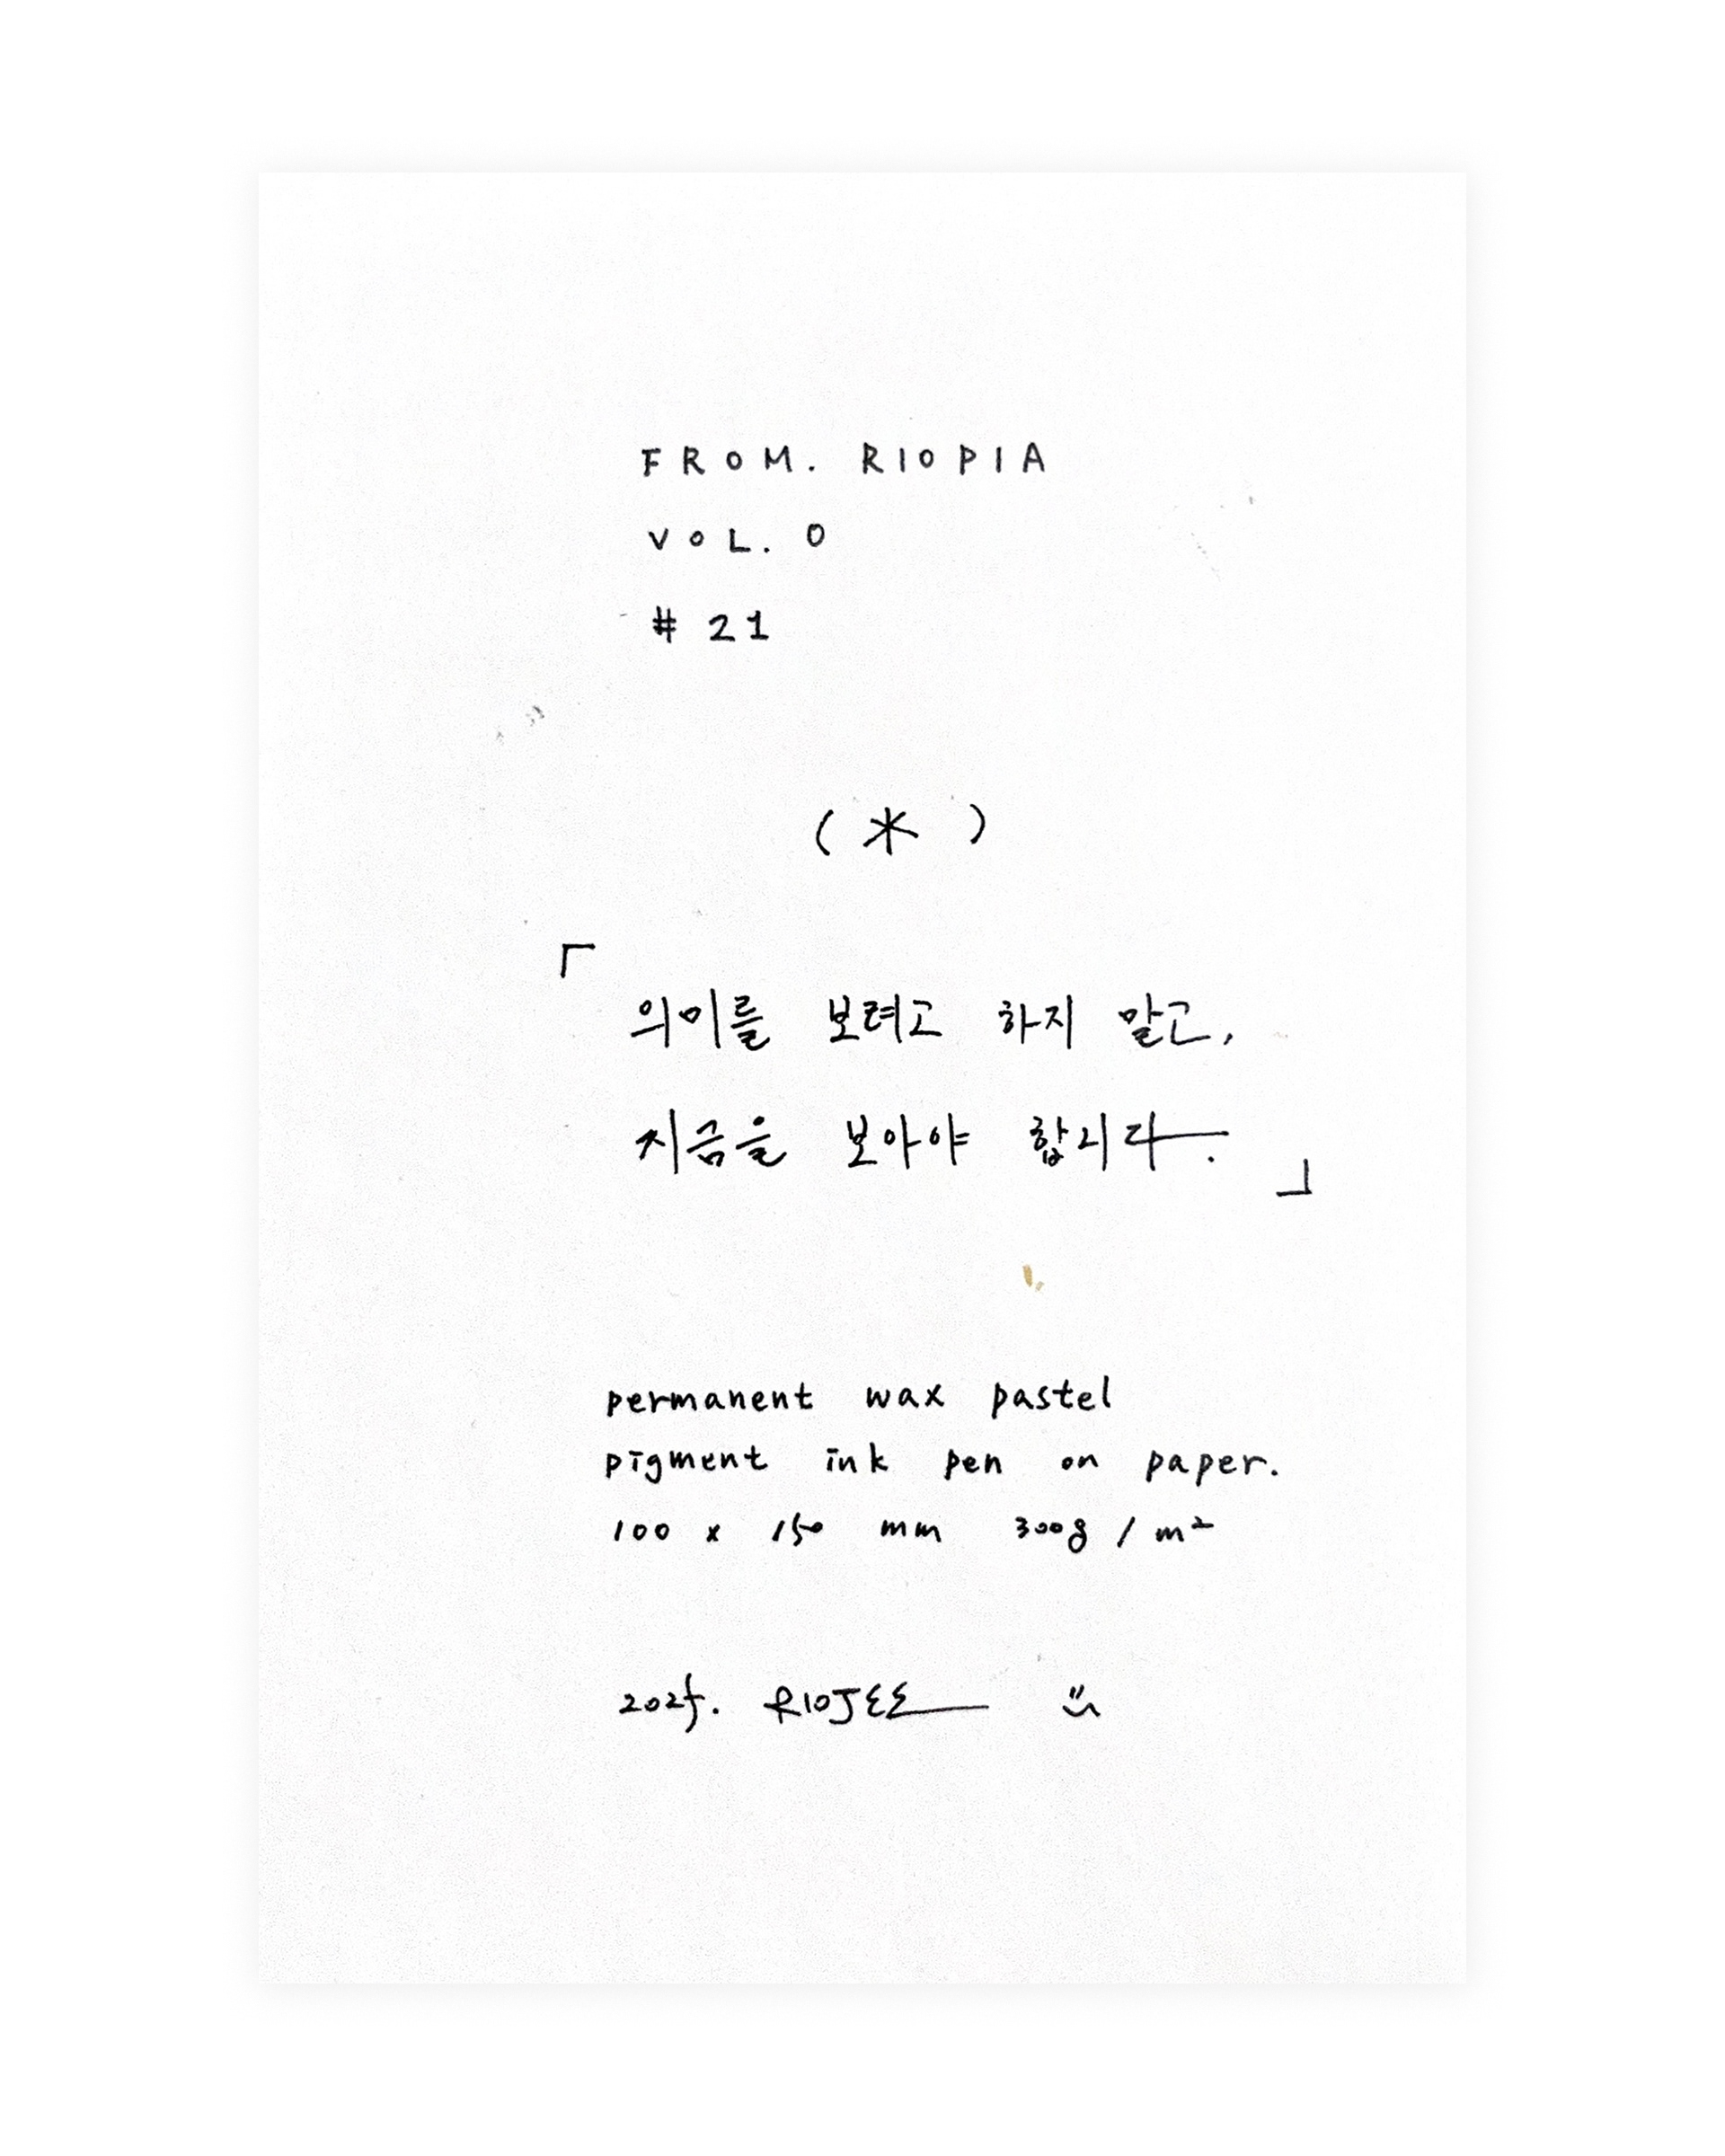 FROM. RIOPIA
VOL. 0
# 21
( * )
「
의미를 보려고 하지 말고,
지금을 보아야 합니다.
」
permanent wax pastel
pigment ink pen on paper.
100 x 150 mm 300g / m²
2025. RIOJEE